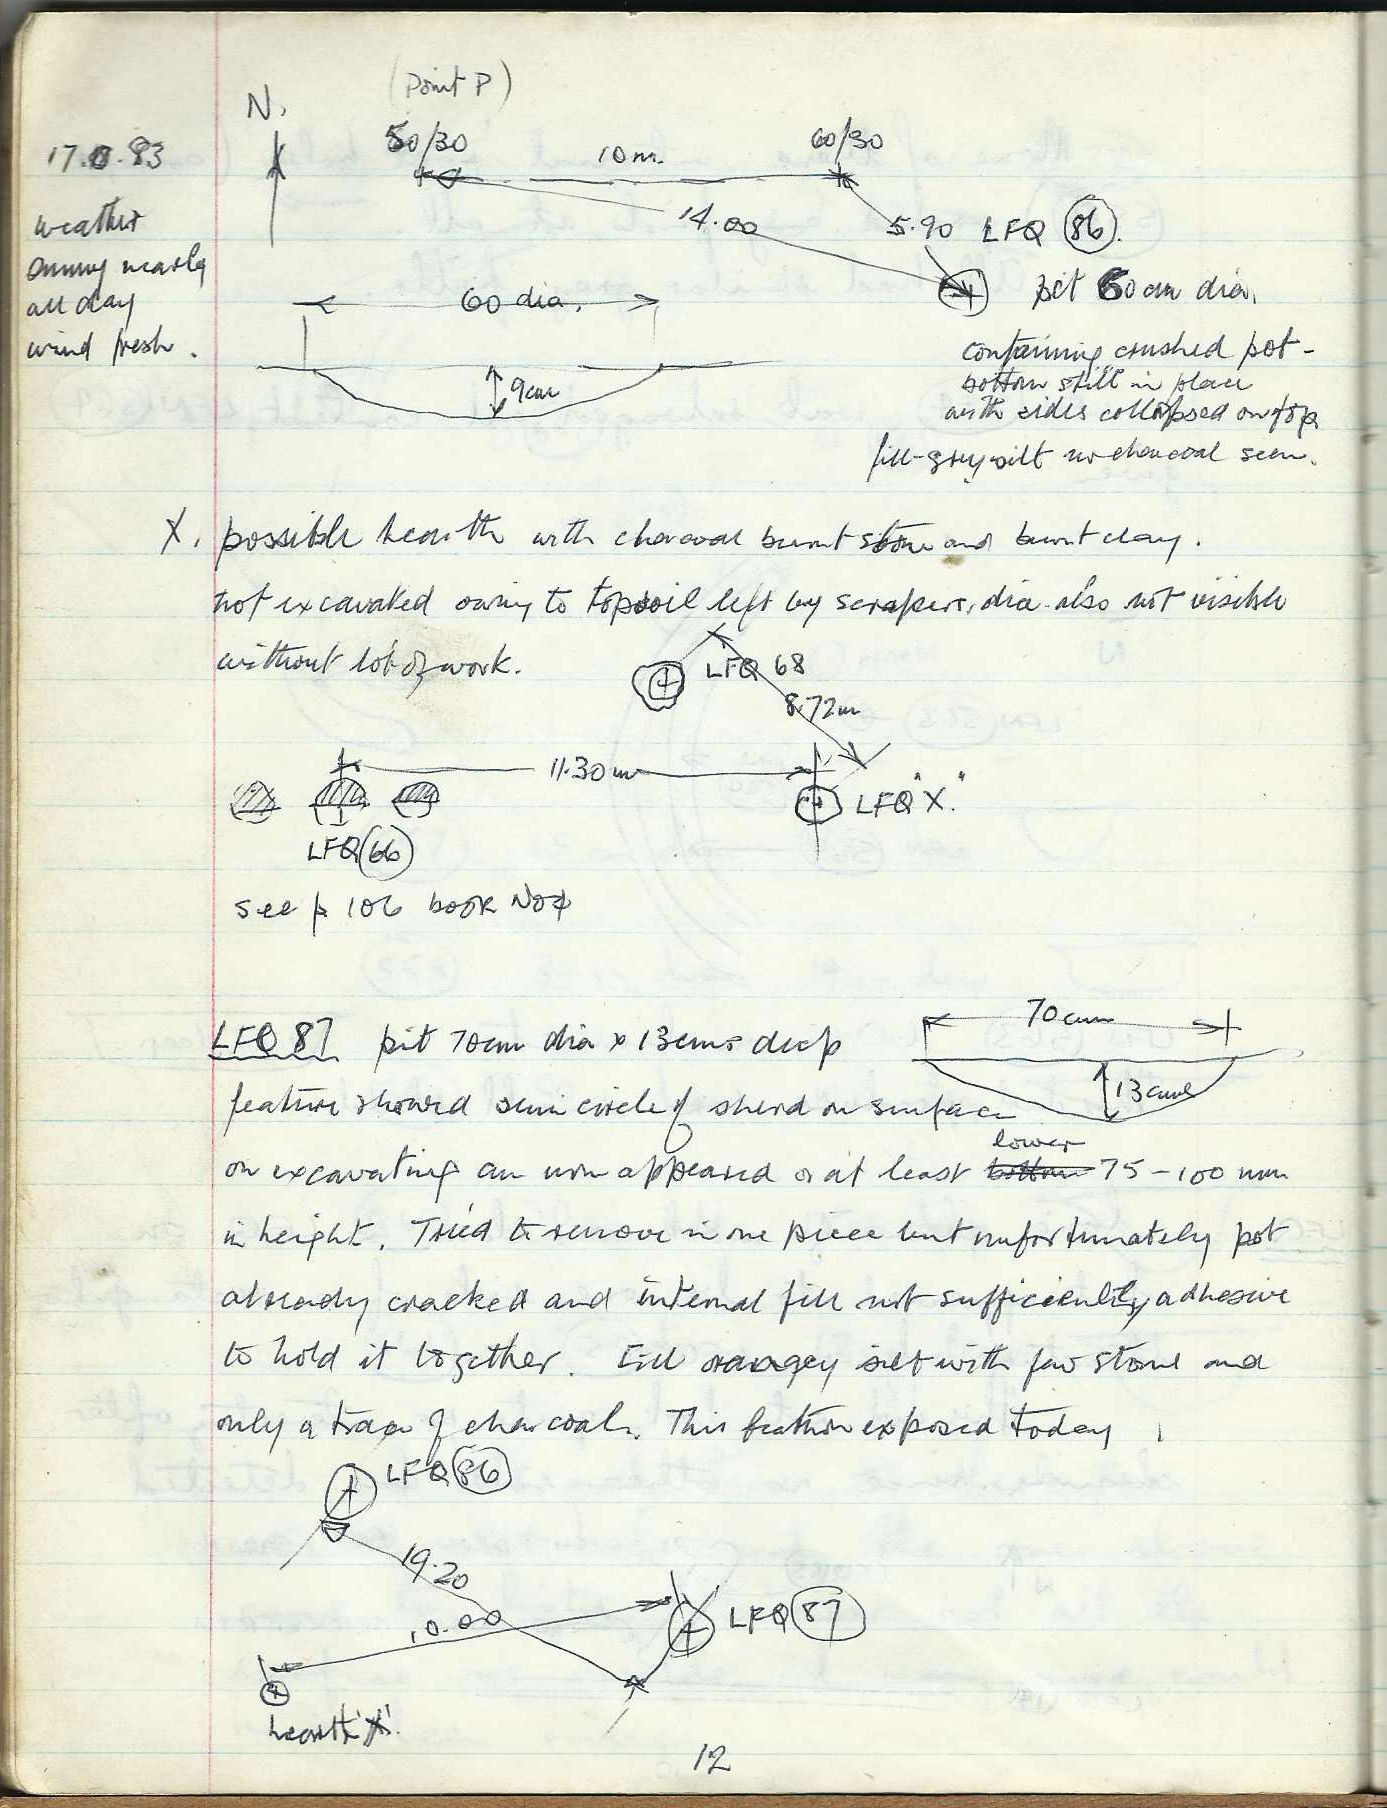 (Point P)
N.
50/30 10m. 60/30
17. .83
14.00 5.90 LFQ 86.
weather
sunny nearly
all day
wind fresh.
60 dia.
pit 60cm dia.
9cm
containing crushed pot -
bottom still in place
with sides collapsed on top
fill - grey silt no charcoal seen.
X. possible hearth with charcoal burnt stone and burnt clay.
not excavated owing to topsoil left by scrapers, dia. also not visible
without lot of work.
LFQ 68
8.72m
11.30m
LFQ "X."
LFQ 66
see p 106 book No4
70cm
LFQ 87 pit 70cm dia x 13cms deep
13cms
feature showed semi circle of sherd on surface
on excavating an urn appeared or at least bottom lower 75 - 100 mm
in height. Tried to remove in one piece but unfortunately pot
already cracked and internal fill not sufficiently adhesive
to hold it together. Fill orangey silt with few stone and
only a trace of charcoal. This feature exposed today
LFQ 86
19.20
10.00
LFQ 87
hearth 'X'.
12